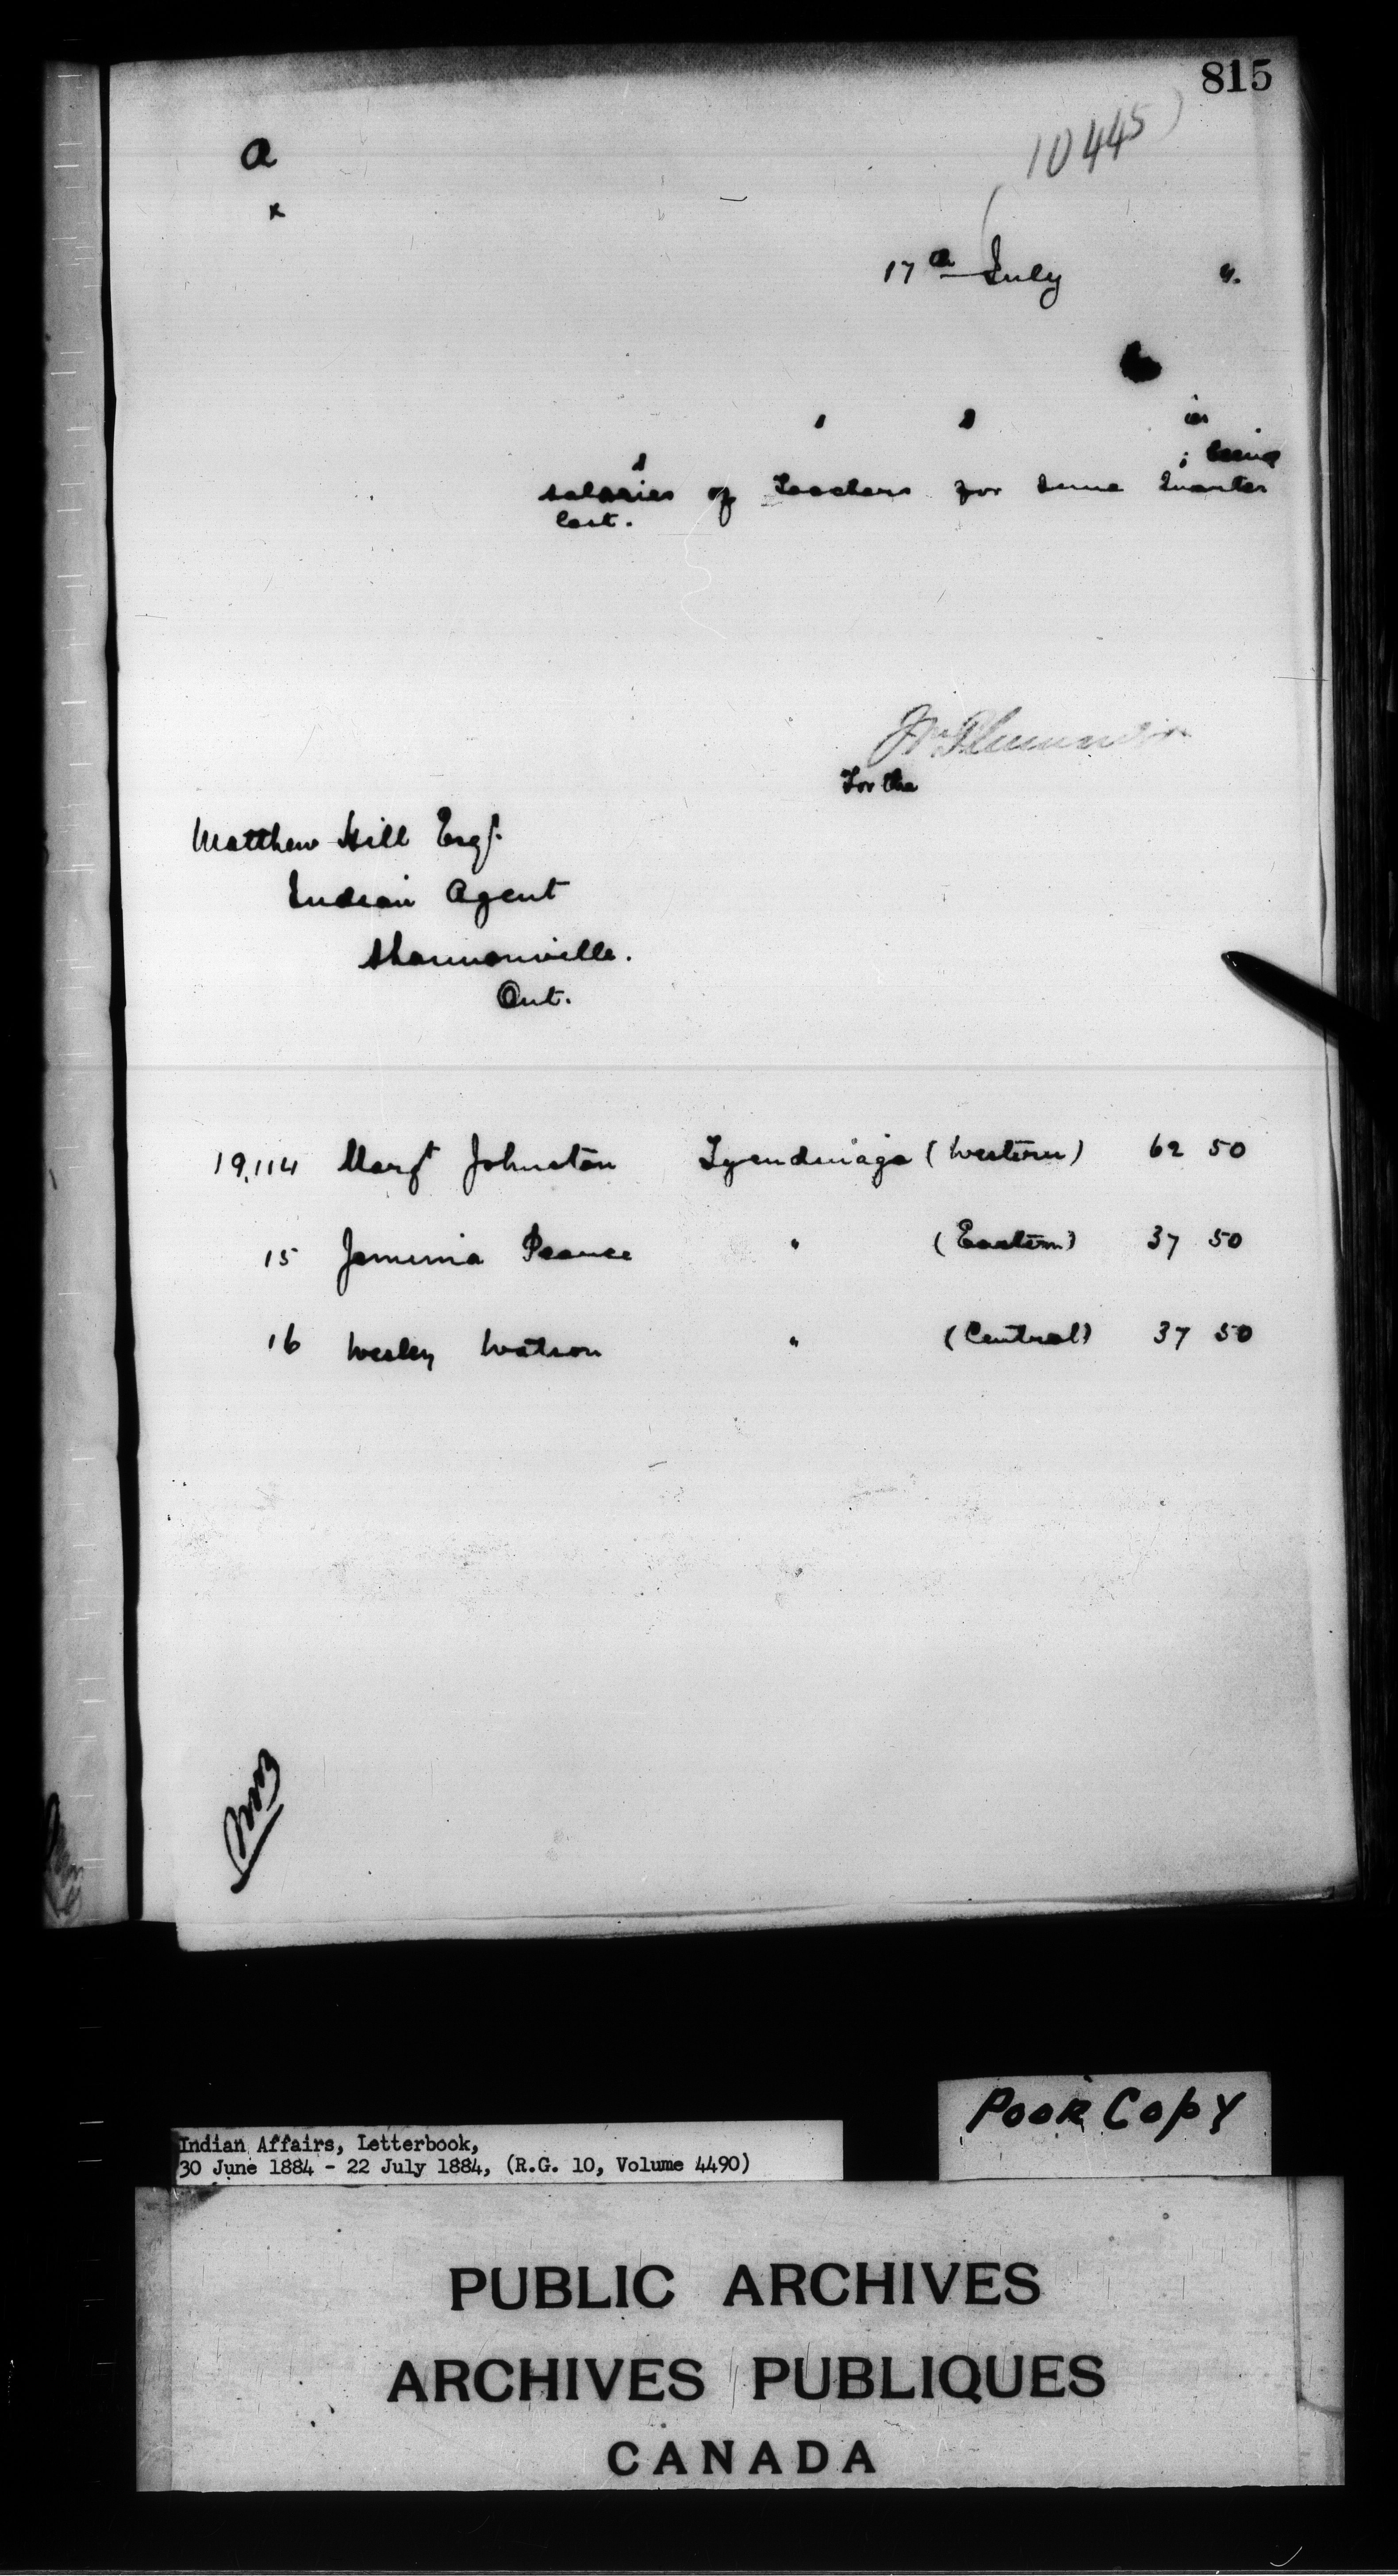 815
a
10445
17th July 4.
s s is
s ; being
salaries of Teachers for June Quarter
last.
For the
Matthew Hill Esqr.
Indian Agent
Shannonville.
Ont.
19,114 Margt Johnston Tyendinaga (Western) 62 50
15 Jemima Pearce " (Eastern) 37 50
16 Wesley Watson " (Central) 37 50
Poor Copy
Indian Affairs, Letterbook,
30 June 1884 - 22 July 1884, (R.G. 10, Volume 4490)
PUBLIC ARCHIVES
ARCHIVES PUBLIQUES
CANADA